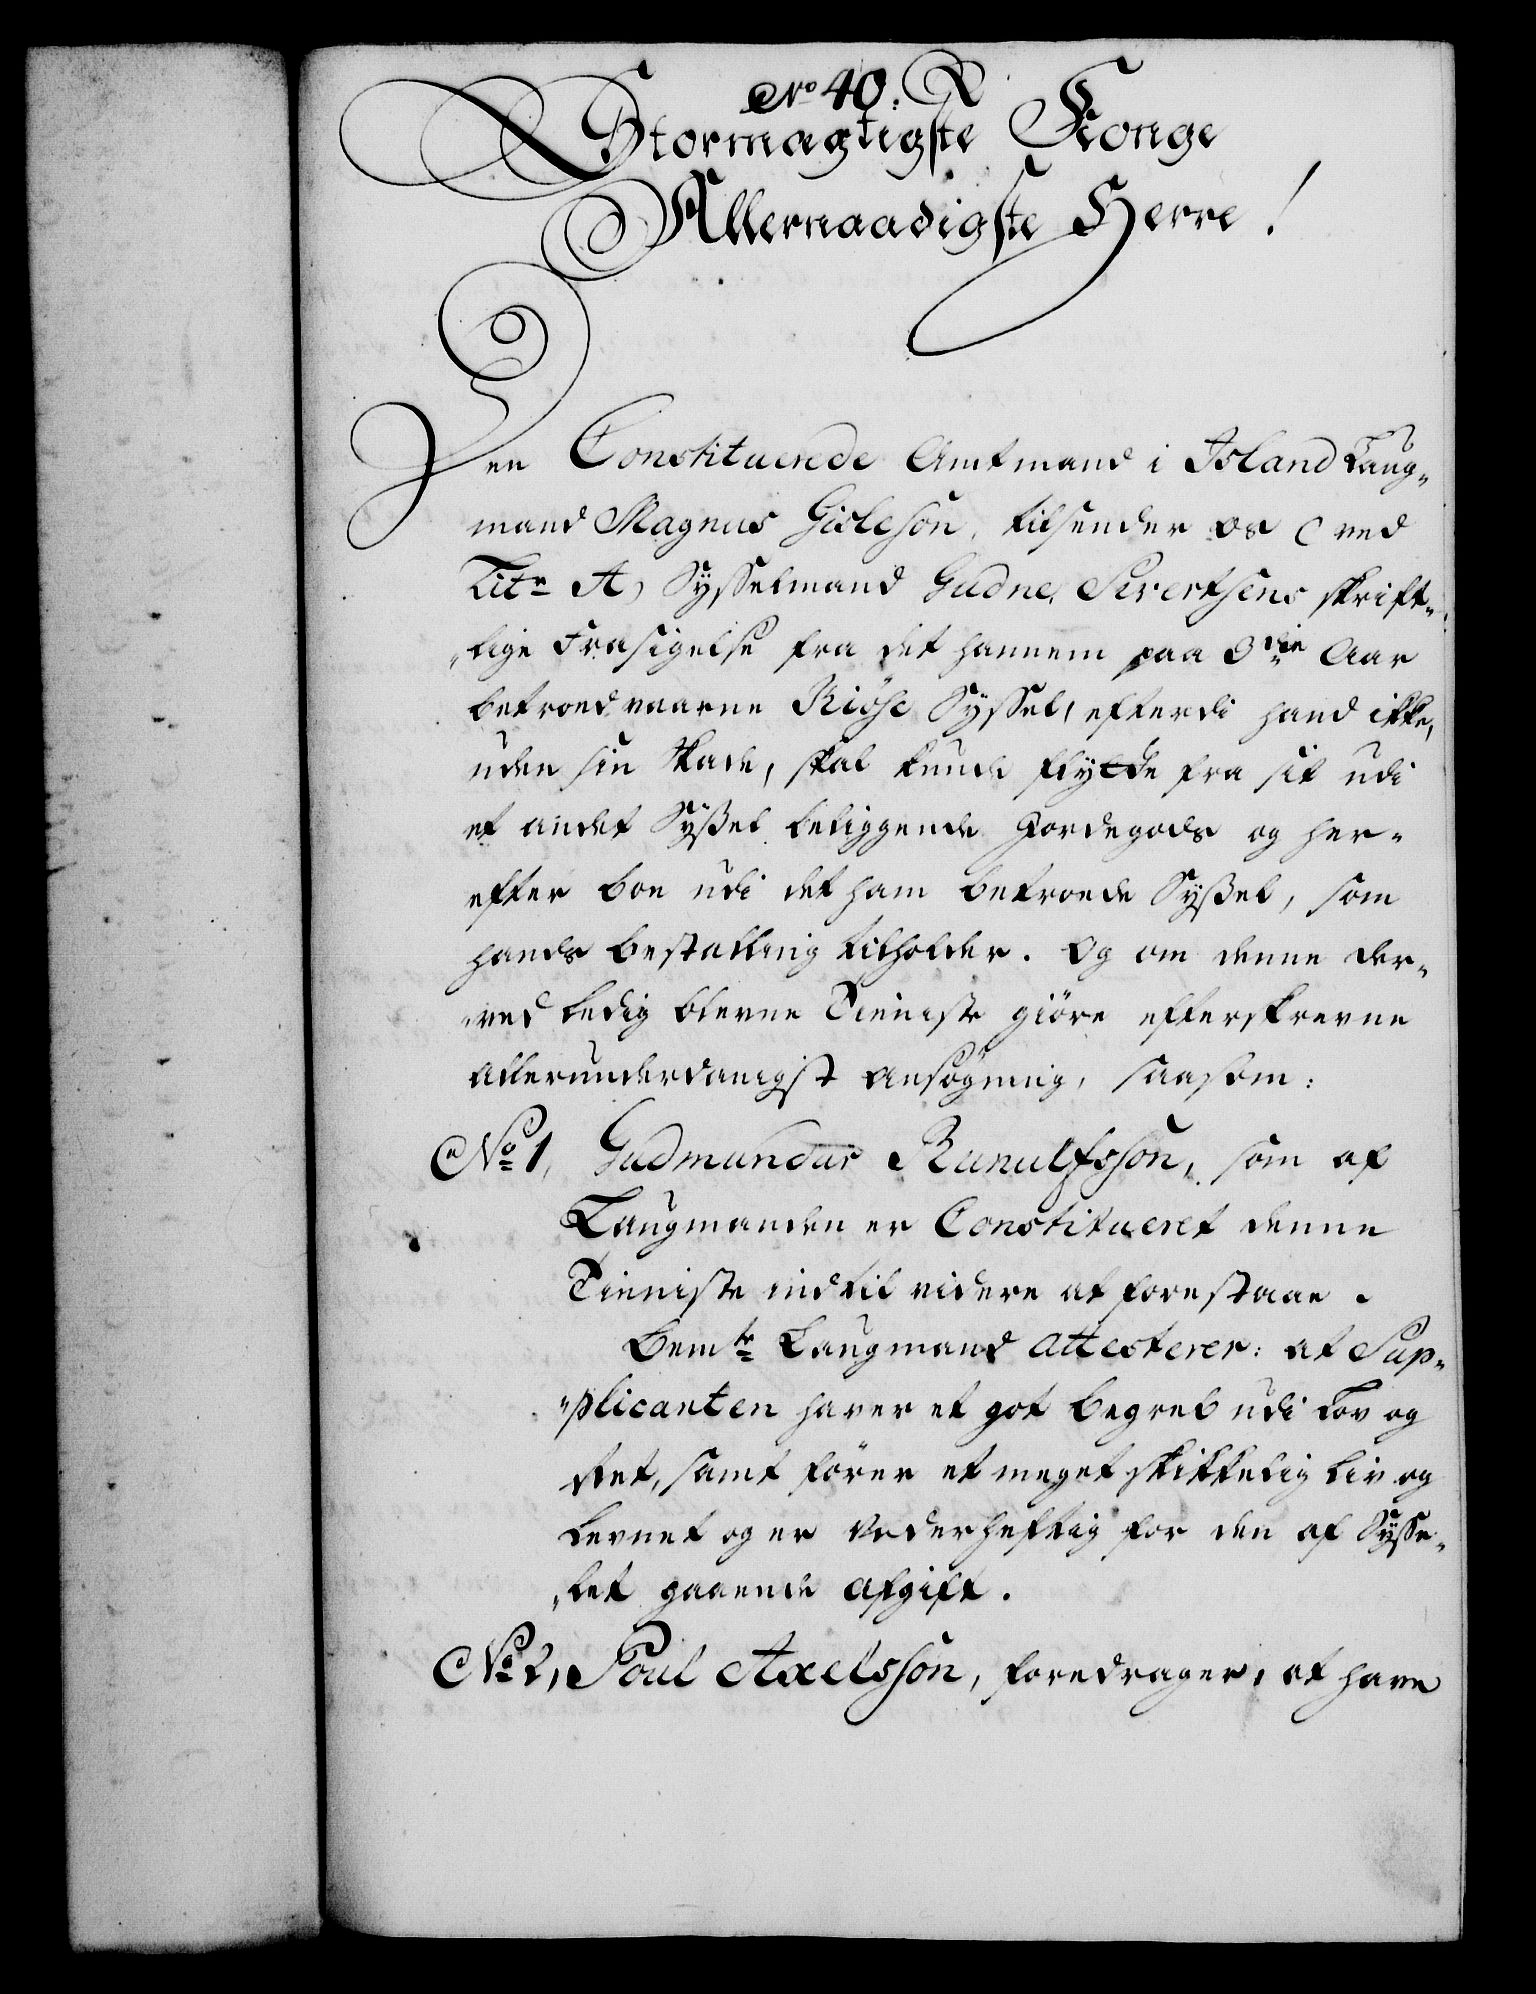 No 40. R
Stormægtigste Konge
Allernaadigste Herre!
Den Constituerede Amtmand i Island Laug-
mand Magnus Gisleson, tilsender os (ved
Litr A) Sysselmand Gudne Sivertsens skrift-
lige Frasigelse fra det hannem paa 3die Aar
betroedværne Kiose Syssel, efterdi hand ikke,
uden sin Skade, skal kunde flytte fra sit udi
et andet Syssel beliggende Jordegods og her-
efter boe udi det ham betroede Syssel, som
hands bestalling tilholder. Og om denne der-
ved ledig blevne Tieniste giöre efterskrevne
allerunderdanigst ansögning, saasom:
No 1, Gudmundur Runulfsson, som af
Laugmanden er Constitueret denne
Tieniste indtil videre at forestaae.
Bemte Laugmand attesterer: at Sup-
plicanten haver et got begreb udi Lov og
Ret, samt förer et meget skikkelig Liv og
Levnet og er Vederheftig for den af Sysse-
let gaaende afgift.
No 2, Poul Axelsson, foredrager, at have